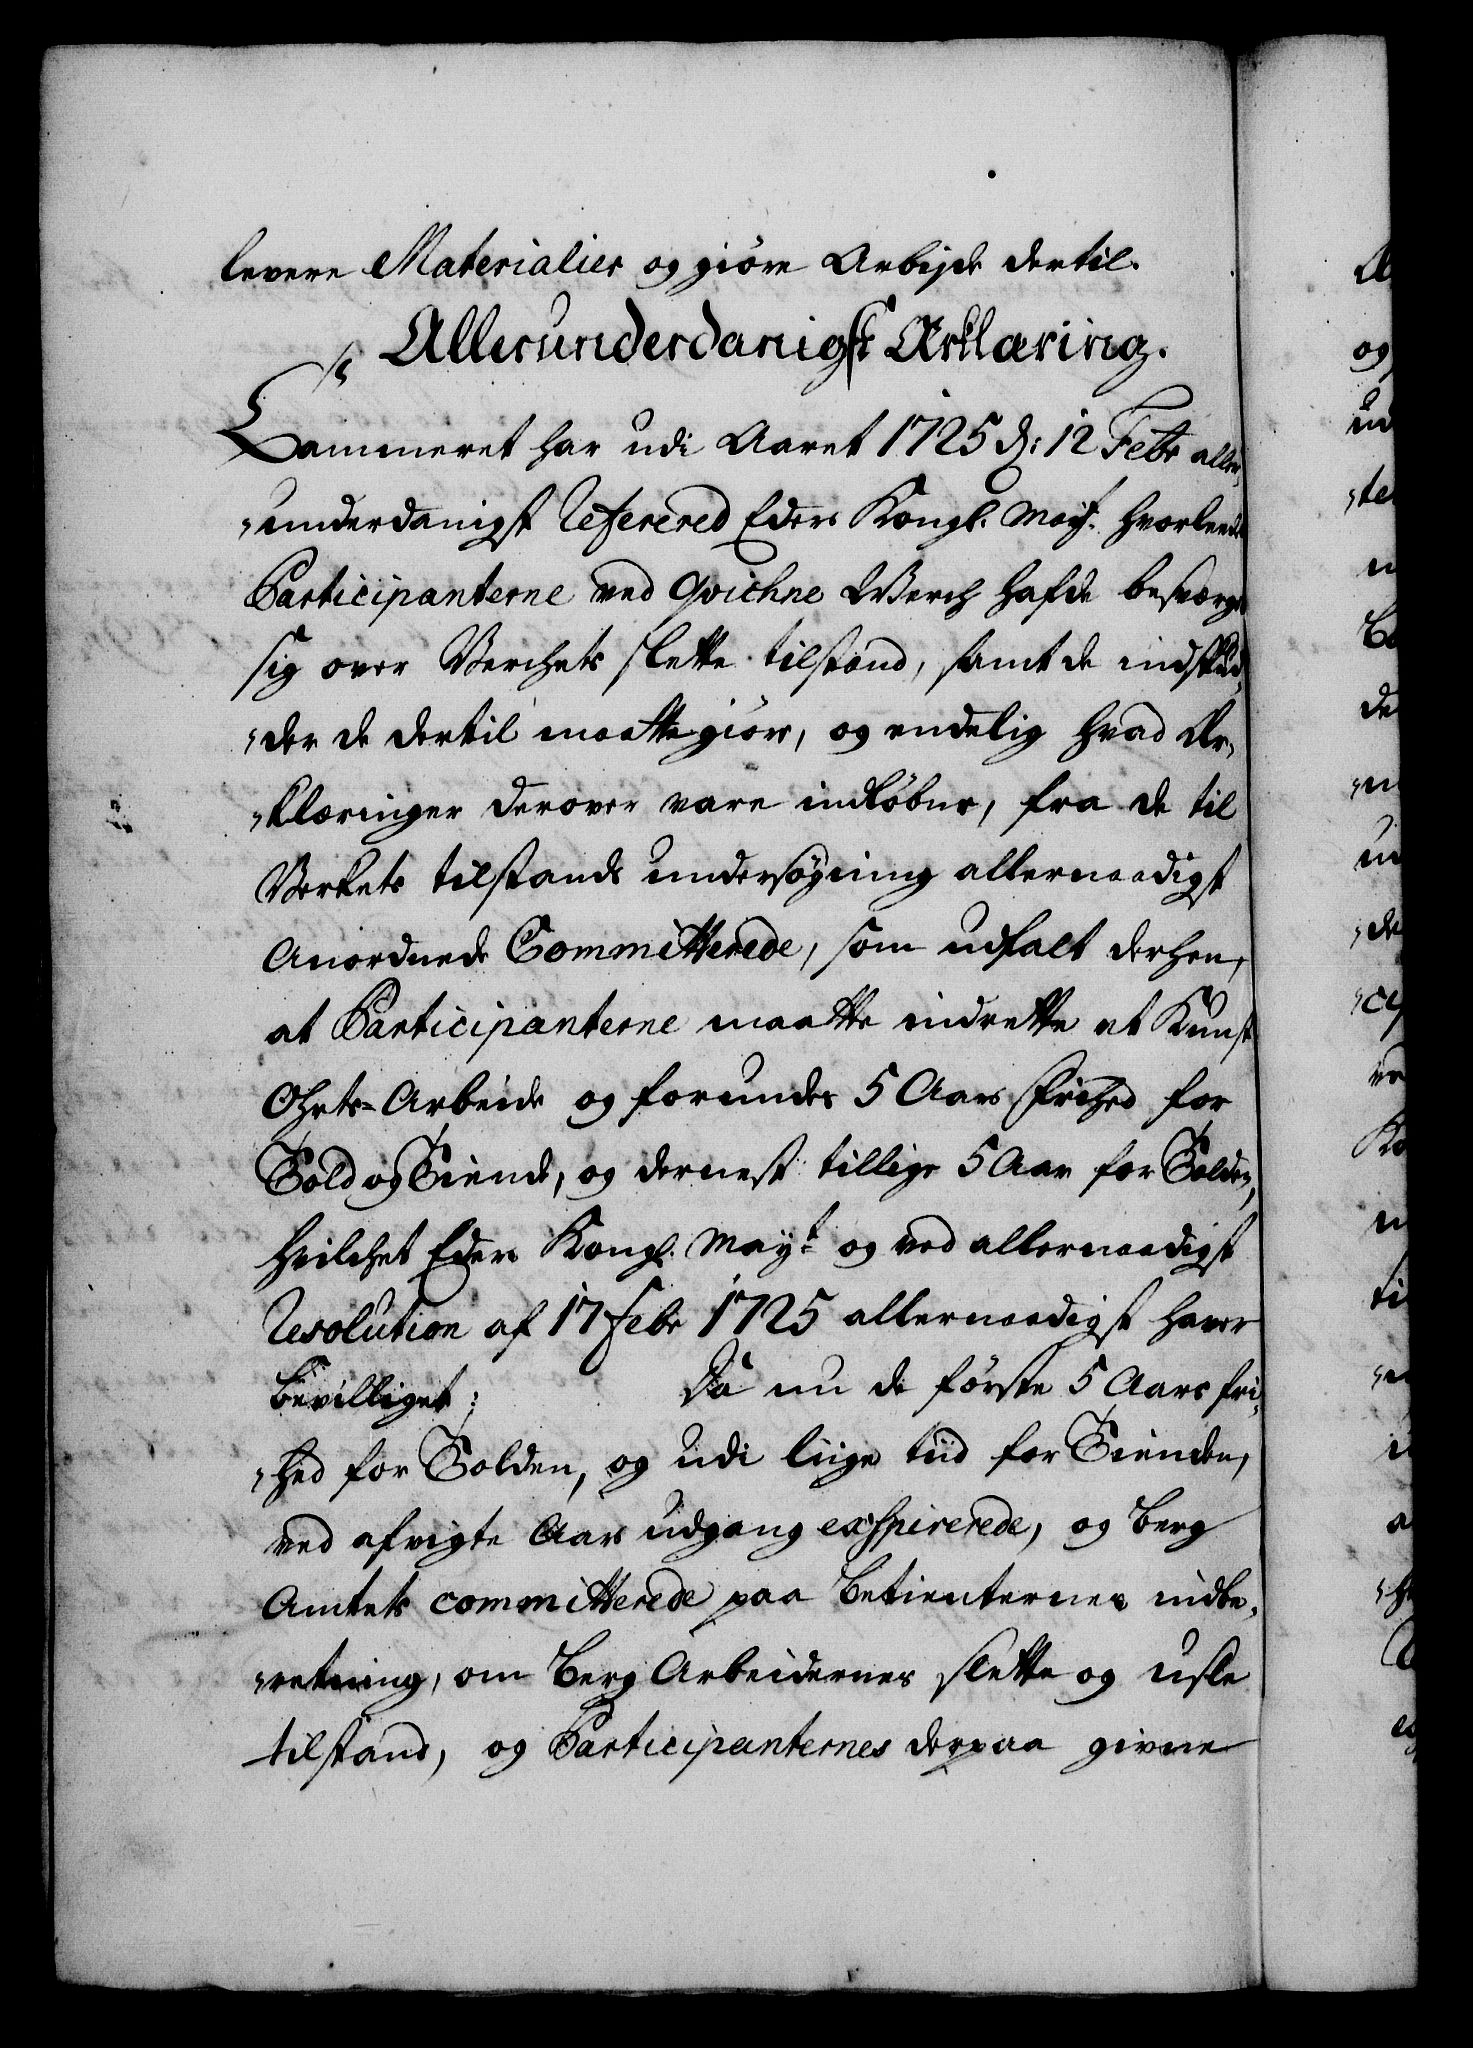 levere Materialier og giöre Arbejde dertil.
Allerunderdanigst Erklæring.
Cammeret har udi Aaret 1725 d: 12 Febr aller-
„underdanigst Referered Eders Kongl. Mayt. hvorleedes
Participanterne ved Qvichne Werch hafde besværget
sig over Verchets slette tilstand, samt de indskud-
„der de dertil maatte giöre, og endelig hvad Er-
„klæringer derover vare indlöbne, fra de til
Verkets tilstands undersögning allernaadigst
Anordnede Committerede, som udfalt derhen,
at Participanterne maatte indrette et Kunst
Ohrts-Arbeide og forundes 5 Aars Frihed for
Told og Tiende, og dernest tillige 5 Aar for Tolden,
hvilchet Eders Kongl. Mayt. og ved allernaadigst
Resolution af 17 Febr 1725 allernaadigst haver
bevilliget; Da nu de förste 5 Aars fri-
„hed for Tolden, og udi liige tiid for Tienden,
ved afvigte Aars udgang exspirerede, og Berg
Amtets committerede paa Betienternes indbe-
„retning, om Berg Arbeidernes slette og usle
tilstand, og Participanternes derpaa givne